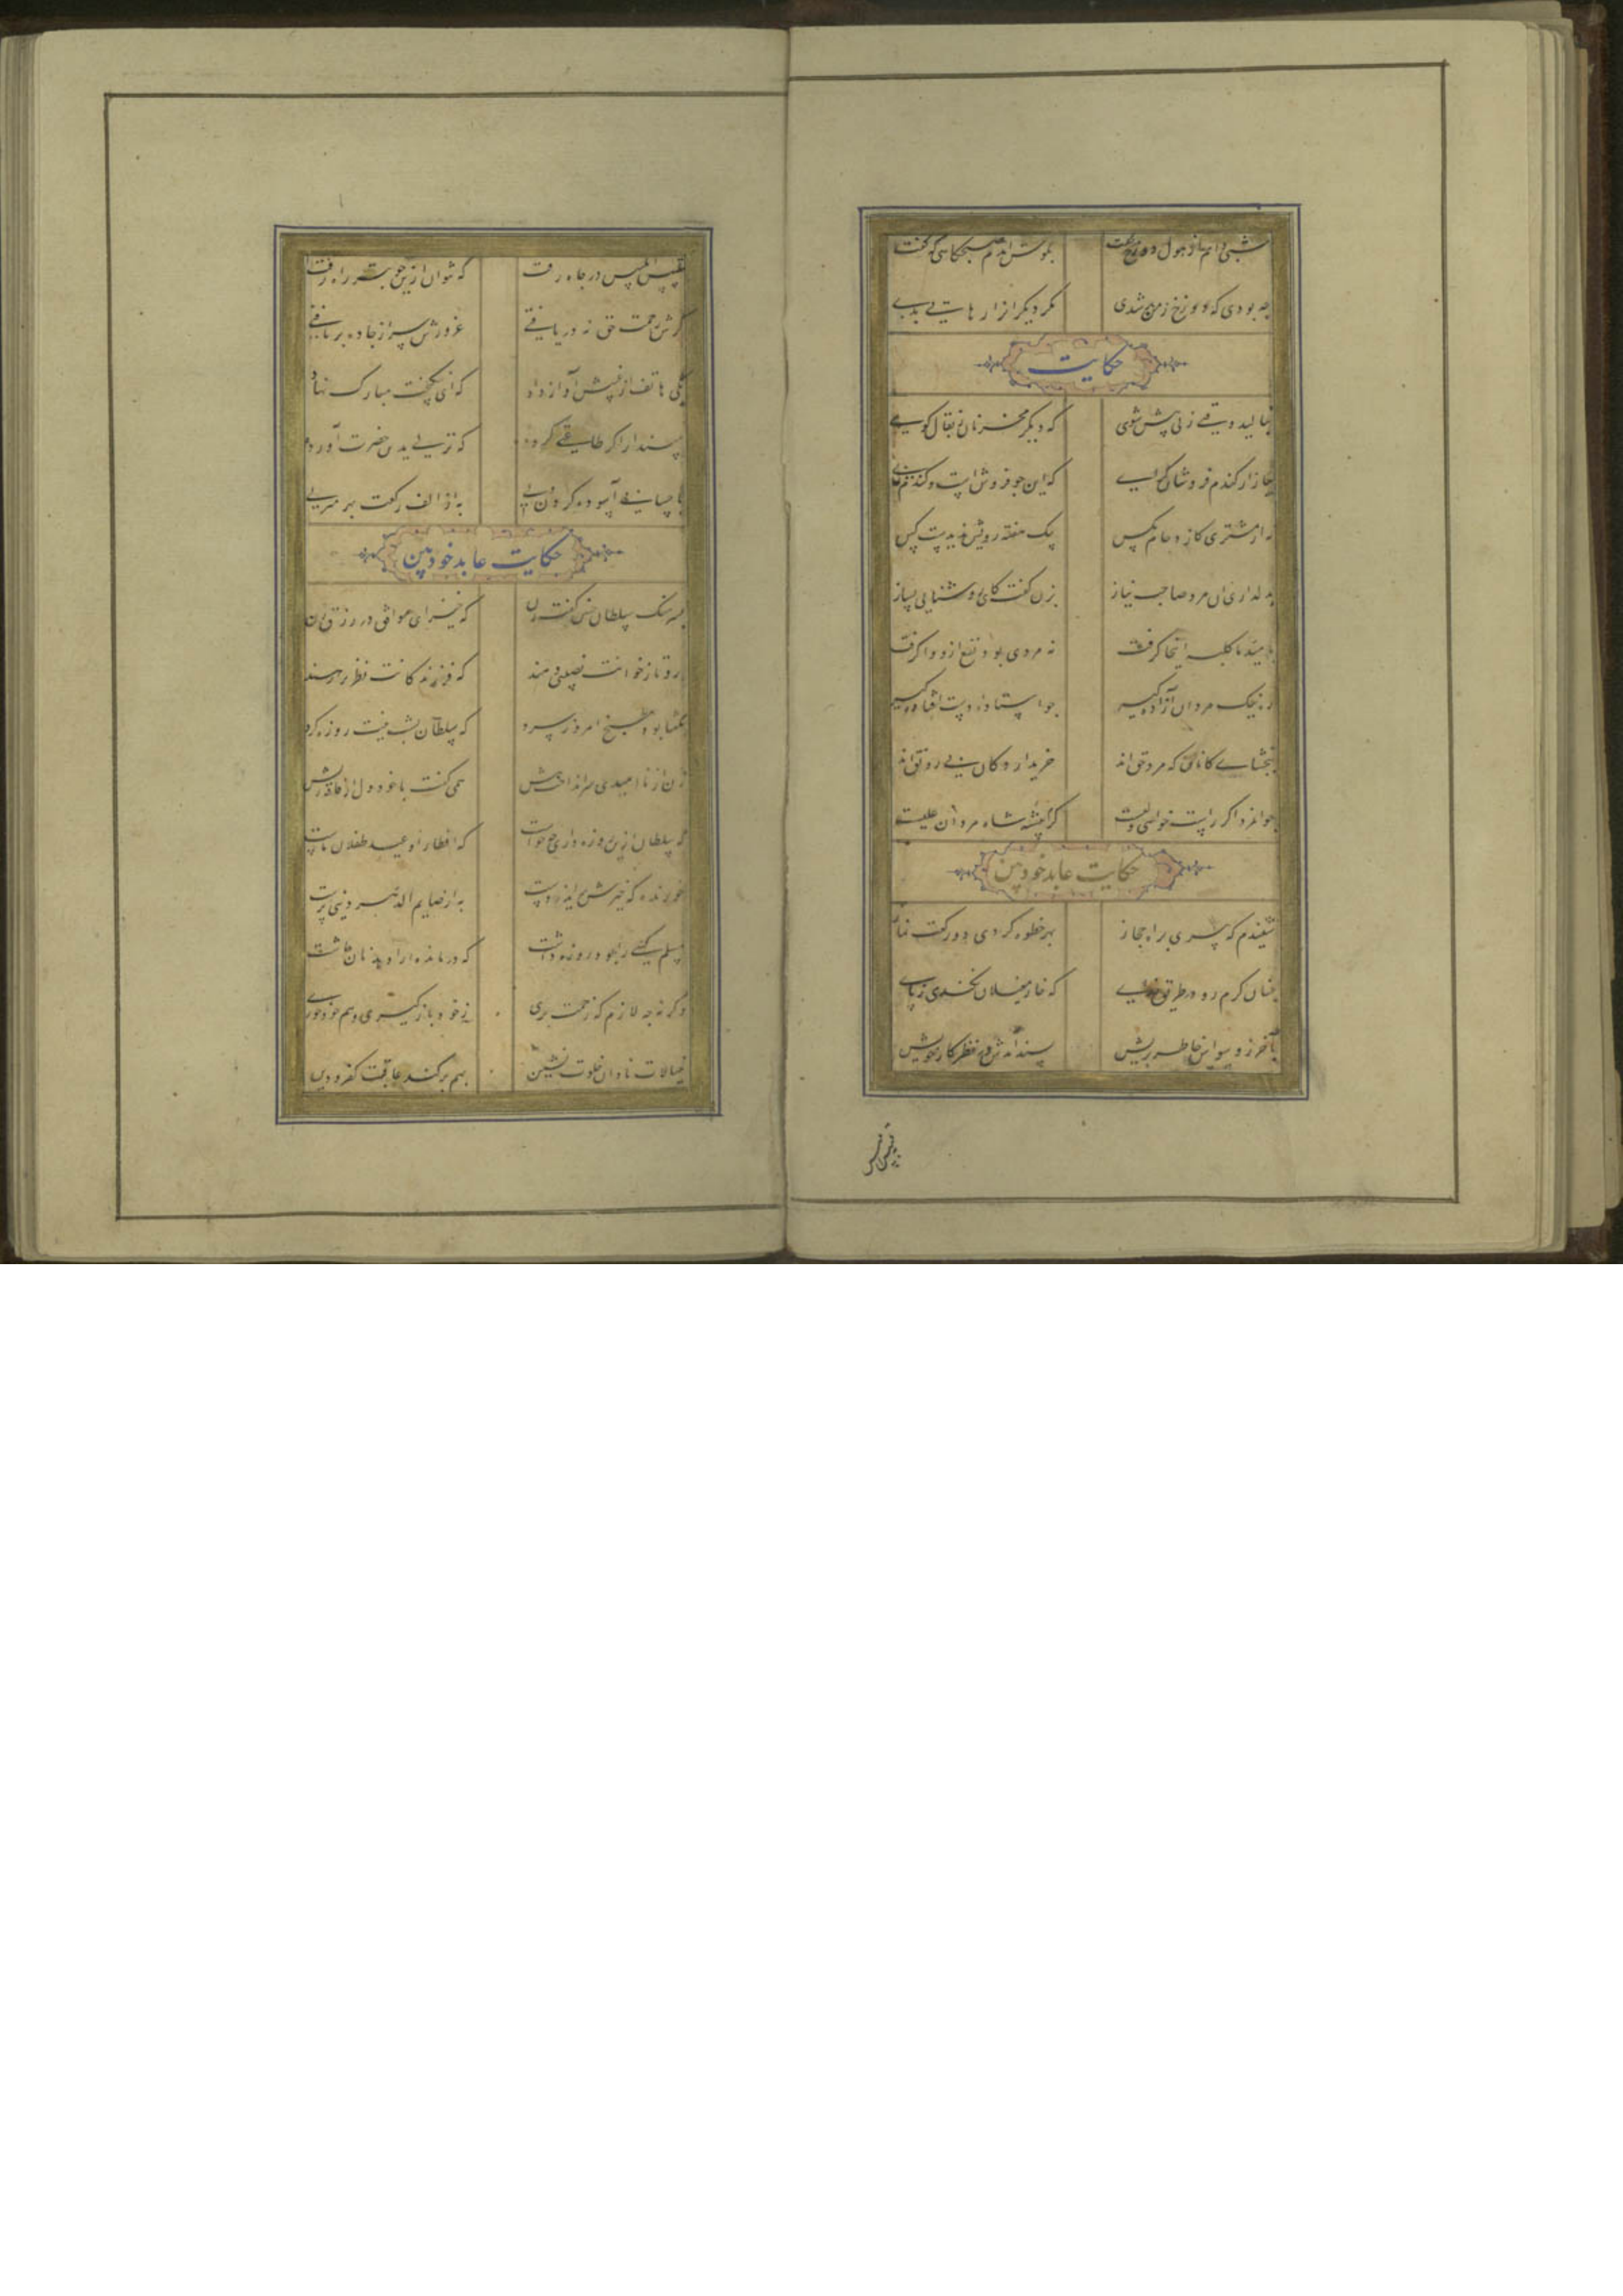 شبی دانم از هول دوزخ نخفت بگوش آمدم صبحگاهی که گفت
چه بودی که دوزخ ز من پر شدی مگر دیگرانرا رهایی بدی
حکایت
بنالید وقتی زنی پیش شوی که دیگر مخر نان ز بقال کوی
ببازار گندم فروشان گرای که این جو فروش است و گندم نمای
نه از مشتری کز دحام مگس بیک هفته رویش ندیدست کس
بدلداری آن مرد صاحب نیاز بزن گفت کای روشنایی بساز
بامید ما کلبه اینجا گرفت نه مردی بود نفع ازو وا گرفت
ره نیک مردان آزاده گیر چو استاده دست افتاده گیر
ببخشای کانان که مرد حق اند خریدار دکان بی رونق اند
جوانمرد اگر راست خواهی ولیست کرم پیشه شاه مردان علیست
حکایت عابد خودبین
شنیدم که پیری براه حجاز بهر خطوه کردی دو رکعت نماز
چنان گرم رو در طریق خدای که خار مغیلان نکندی ز پای
بآخر ز وسواس خاطر پریش پسند آمدش در نظر کار خویش
بتلبیس ابلیس در چاه رفت که نتوان ازین خوبتر راه رفت
گرش رحمت حق نه دریافتی غرورش سر از جاده برتافتی
یکی هاتف از غیبش آواز داد که ای نیکبخت مبارک نهاد
مپندار اگر طاعتی کرده که نزلی بدین حضرت آورده
باحسانی آسوده کردن دلی به از الف رکعت بهر منزلی
حکایت عابد خودبین
بسرهنگ سلطان چنین گفت زن که خیز ای موافق در رزق زن
برو تا ز خوانت نصیبی دهند که فرزندکانت نظر برهند
بگفتا بود مطبخ امروز سرد که سلطان بشب نیت روزه کرد
زن از ناامیدی سر انداخت پیش همی گفت با خود دل از فاقه ریش
که سلطان ازین روزه داری چه خواست که افطار او عید طفلان ماست
خورنده که خیرش برآید ز دست به از صایم الدهر دنیی پرست
مسلم کسی را بود روزه داشت که درمانده را دهد نان چاشت
وگرنه چه لازم که زحمت بری ز خود باز گیری و هم خود خوری
خیالات نادان خلوت نشین بهم برکند عاقبت کفر و دین